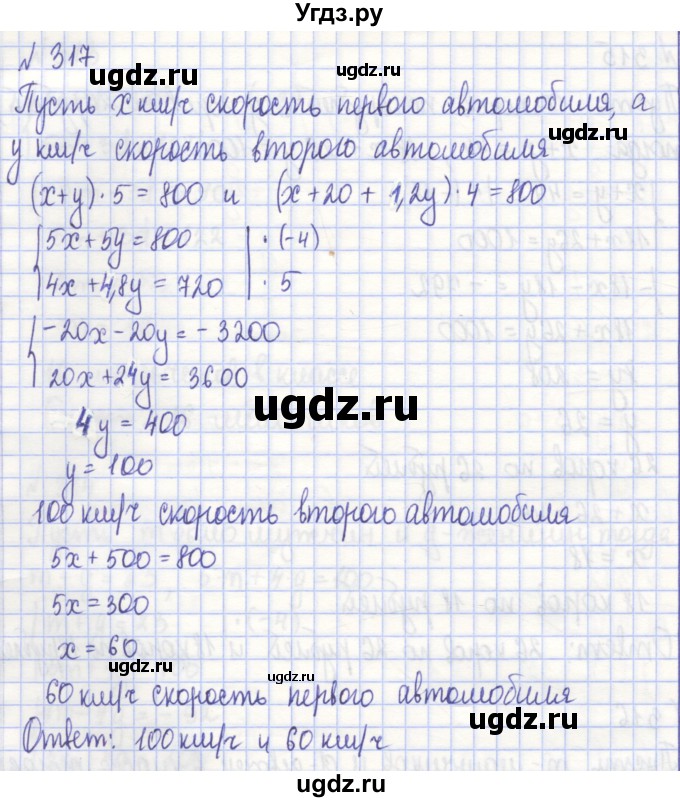 Угдз.ру
№ 317
ugdz.ru ugdz.ru
Пусть x км/ч скорость первого автомобиля, а
ugdz.ru
y км/ч скорость второго автомобиля
(x+y)·5=800 и (x+20+1,2y)·4=800
5x+5y=800 | ·(-4)
4x+4,8y=720 | ·5
-20x-20y=-3200
20x+24y=3600
ugdz.ru
4y=400
y=100
100 км/ч скорость второго автомобиля
5x+500=800
5x=300
x=60
ugdz.ru ugdz.ru
60 км/ч скорость первого автомобиля
ugdz.ru
Ответ: 100 км/ч и 60 км/ч
ugdz.ru